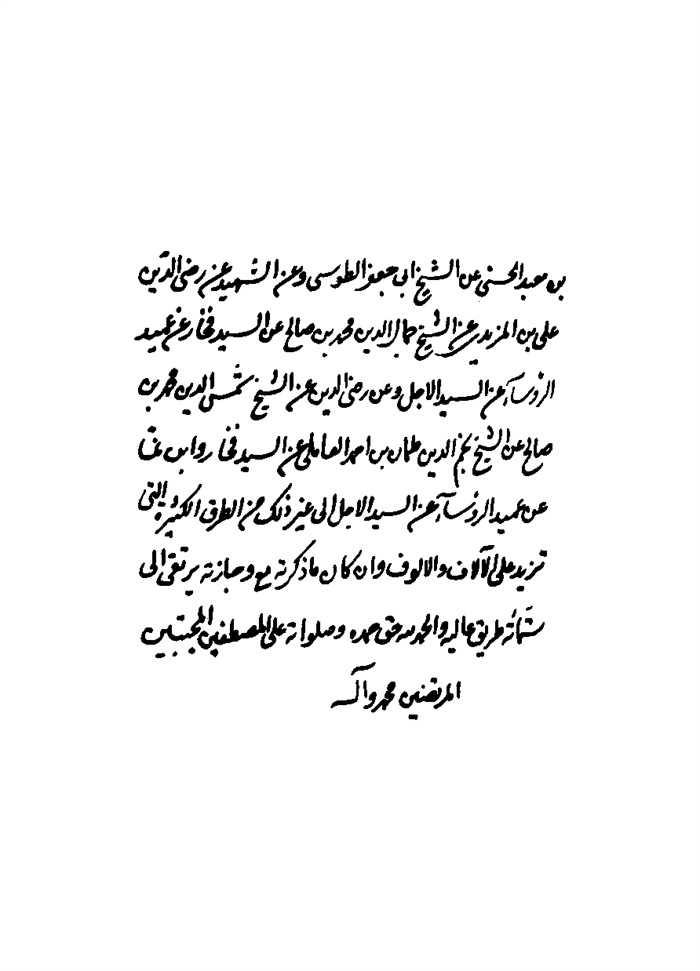 بن معبد الحسنى عن الشيخ ابى جعفر الطوسى وعن الشهيد عن رضى الدّين
على بن المزيدى عن الشيخ جمال الدين محمد بن صالح عن السيد فخار عن عميد
الرؤسآء عن السيد الاجل وعن رضى الدين عن الشيخ شمس الدين محمد بن
صالح عن الشيخ نجم الدين طمان بن احمد العاملى عن السيد فخار وابن نما
عن عميد الرؤسآء عن السيد الاجل الى غير ذلك من الطرق الكثيرة التى
تزيد على الآلاف والالوف وان كان ما ذكرته مع وجازته يرتقى الى
ستمائة طريق عالية والحمد لله حق حمده وصلواته على المصطفين المجتبين
المرتضين محمد وآله